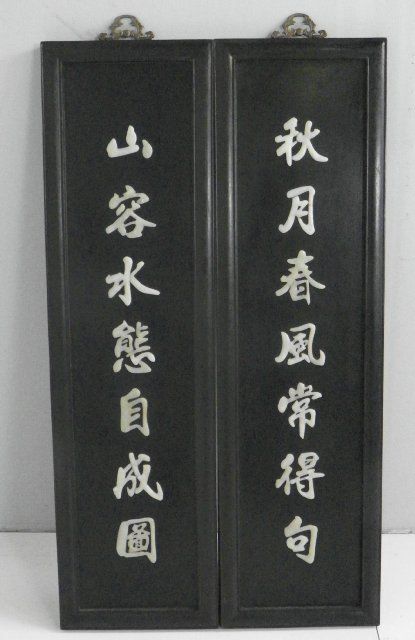 秋月春風常得句
山容水態自成圖